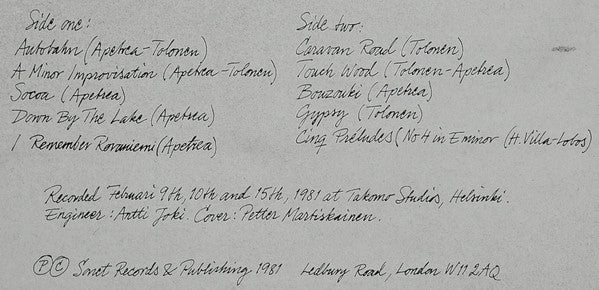 Side one:
Autobahn (Apetrea-Tolonen)
A Minor Improvisation (Apetrea-Tolonen)
Socoa (Apetrea)
Down By The Lake (Apetrea)
I Remember Rovaniemi (Apetrea)
Side two:
Caravan Road (Tolonen)
Touch Wood (Tolonen-Apetrea)
Bouzouki (Apetrea)
Gypsy (Tolonen)
Cinq Préludes (No 4 in E minor (H. Villa-Lobos)
Recorded Februari 9th, 10th and 15th, 1981 at Takomo Studios, Helsinki.
Engineer: Antti Joki. Cover: Petter Martiskainen.
Ⓟ © Sonet Records & Publishing 1981 Ledbury Road, London W11 2AQ